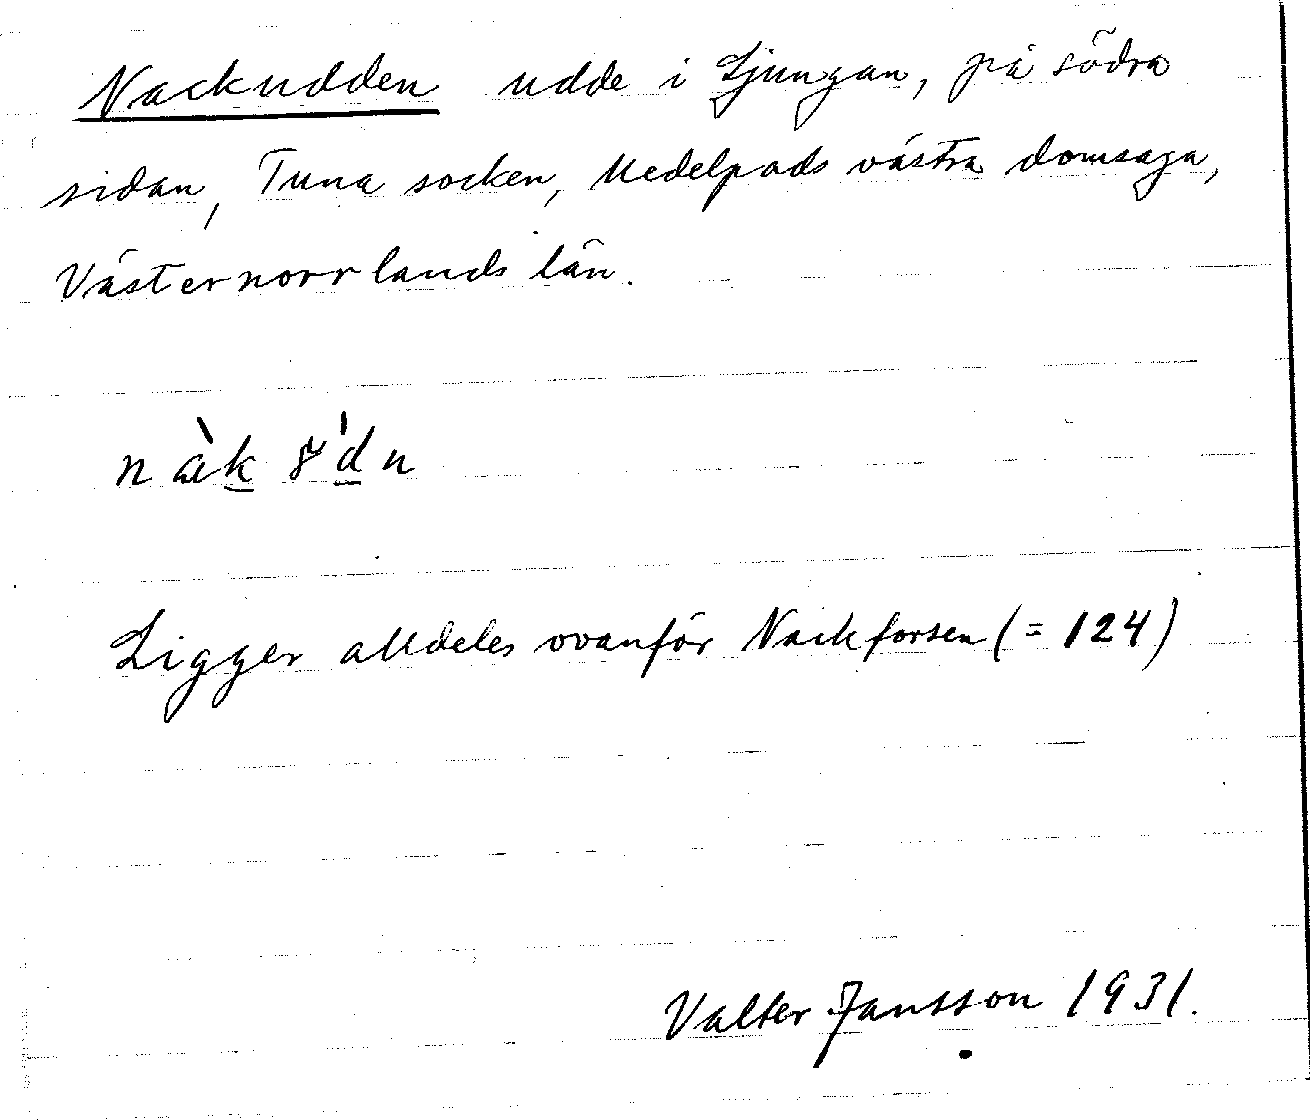 Nackudden udde i Ljungan, på södra
sidan, Tuna socken, Medelpads västra domsaga,
Västernorrlands län.
Ligger alldeles ovanför Nackforsen (= 124)
Valter Jansson 1931.